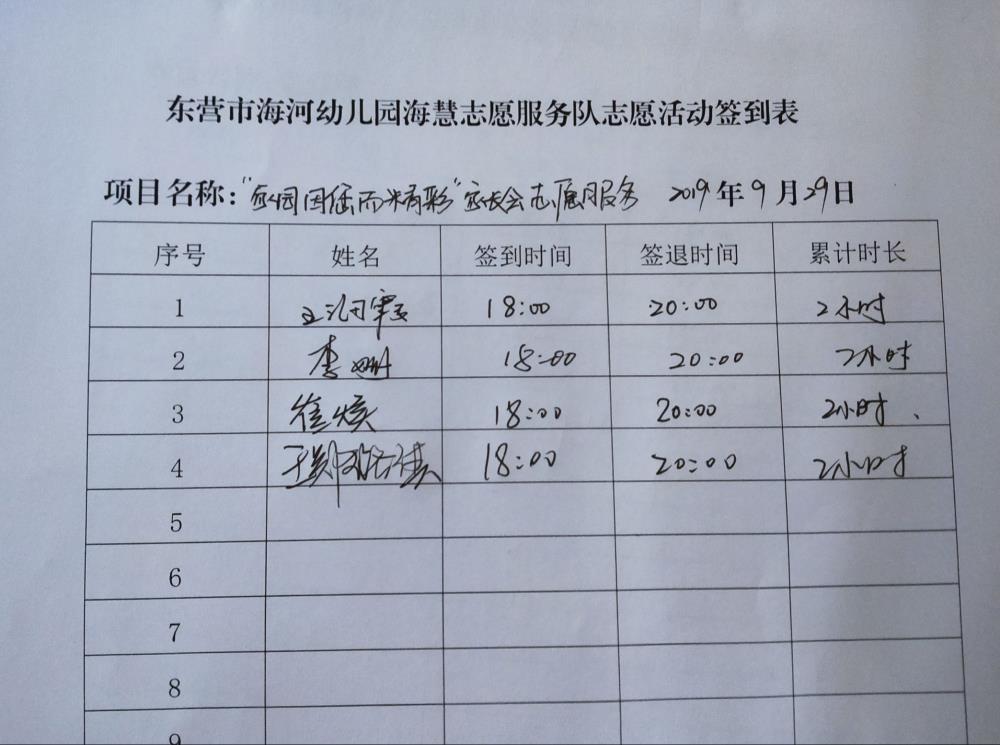 东营市海河幼儿园海慧志愿服务队志愿活动签到表
项目名称："家园因您而精彩"家长会志愿服务 2019年9月29日
序号 姓名 签到时间 签退时间 累计时长
1 18:00 20:00 2小时
2 李姗 18:00 20:00 2小时
3 崔焕 18:00 20:00 2小时、
4 18:00 20:00 2小时
5
6
7
8
9